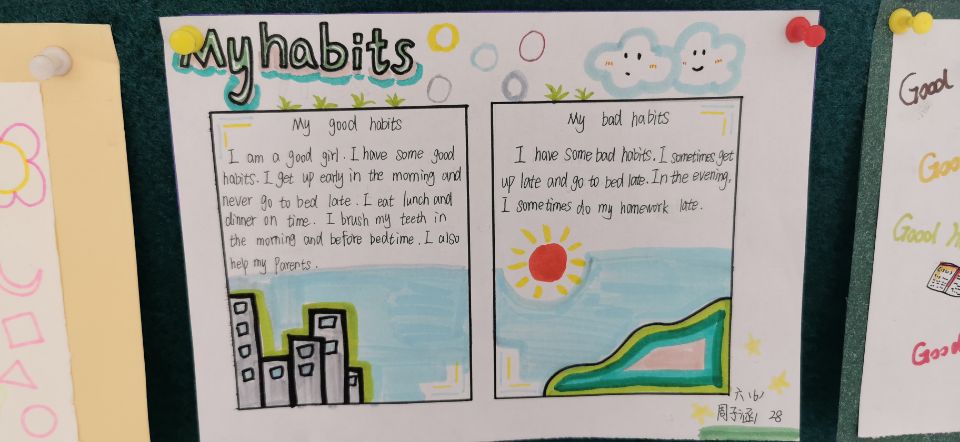 My habits
My good habits
I am a good girl. I have some good
habits. I get up early in the morning and
never go to bed late. I eat lunch and
dinner on time. I brush my teeth in
the morning and before bedtime. I also
help my parents.
My bad habits
I have some bad habits. I sometimes get
up late and go to bed late. In the evening,
I sometimes do my homework late.
六(6)
周子涵 28
Good
Good
Good